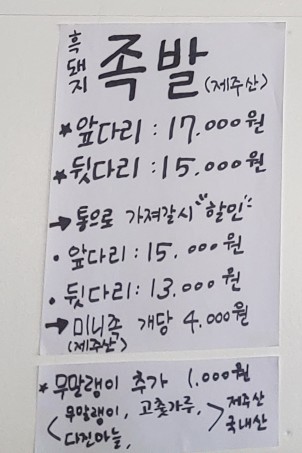 흑돼지 족발 (제주산)
★앞다리 : 17.000원
★뒷다리 : 15.000원
→통으로 가져갈시 "할인"
• 앞다리 : 15.000원
• 뒷다리 : 13.000원
→미니족 개당 4.000원
(제주산)
★무말랭이 추가 1.000원
<무말랭이, 고춧가루, 다진마늘,> 제주산 국내산